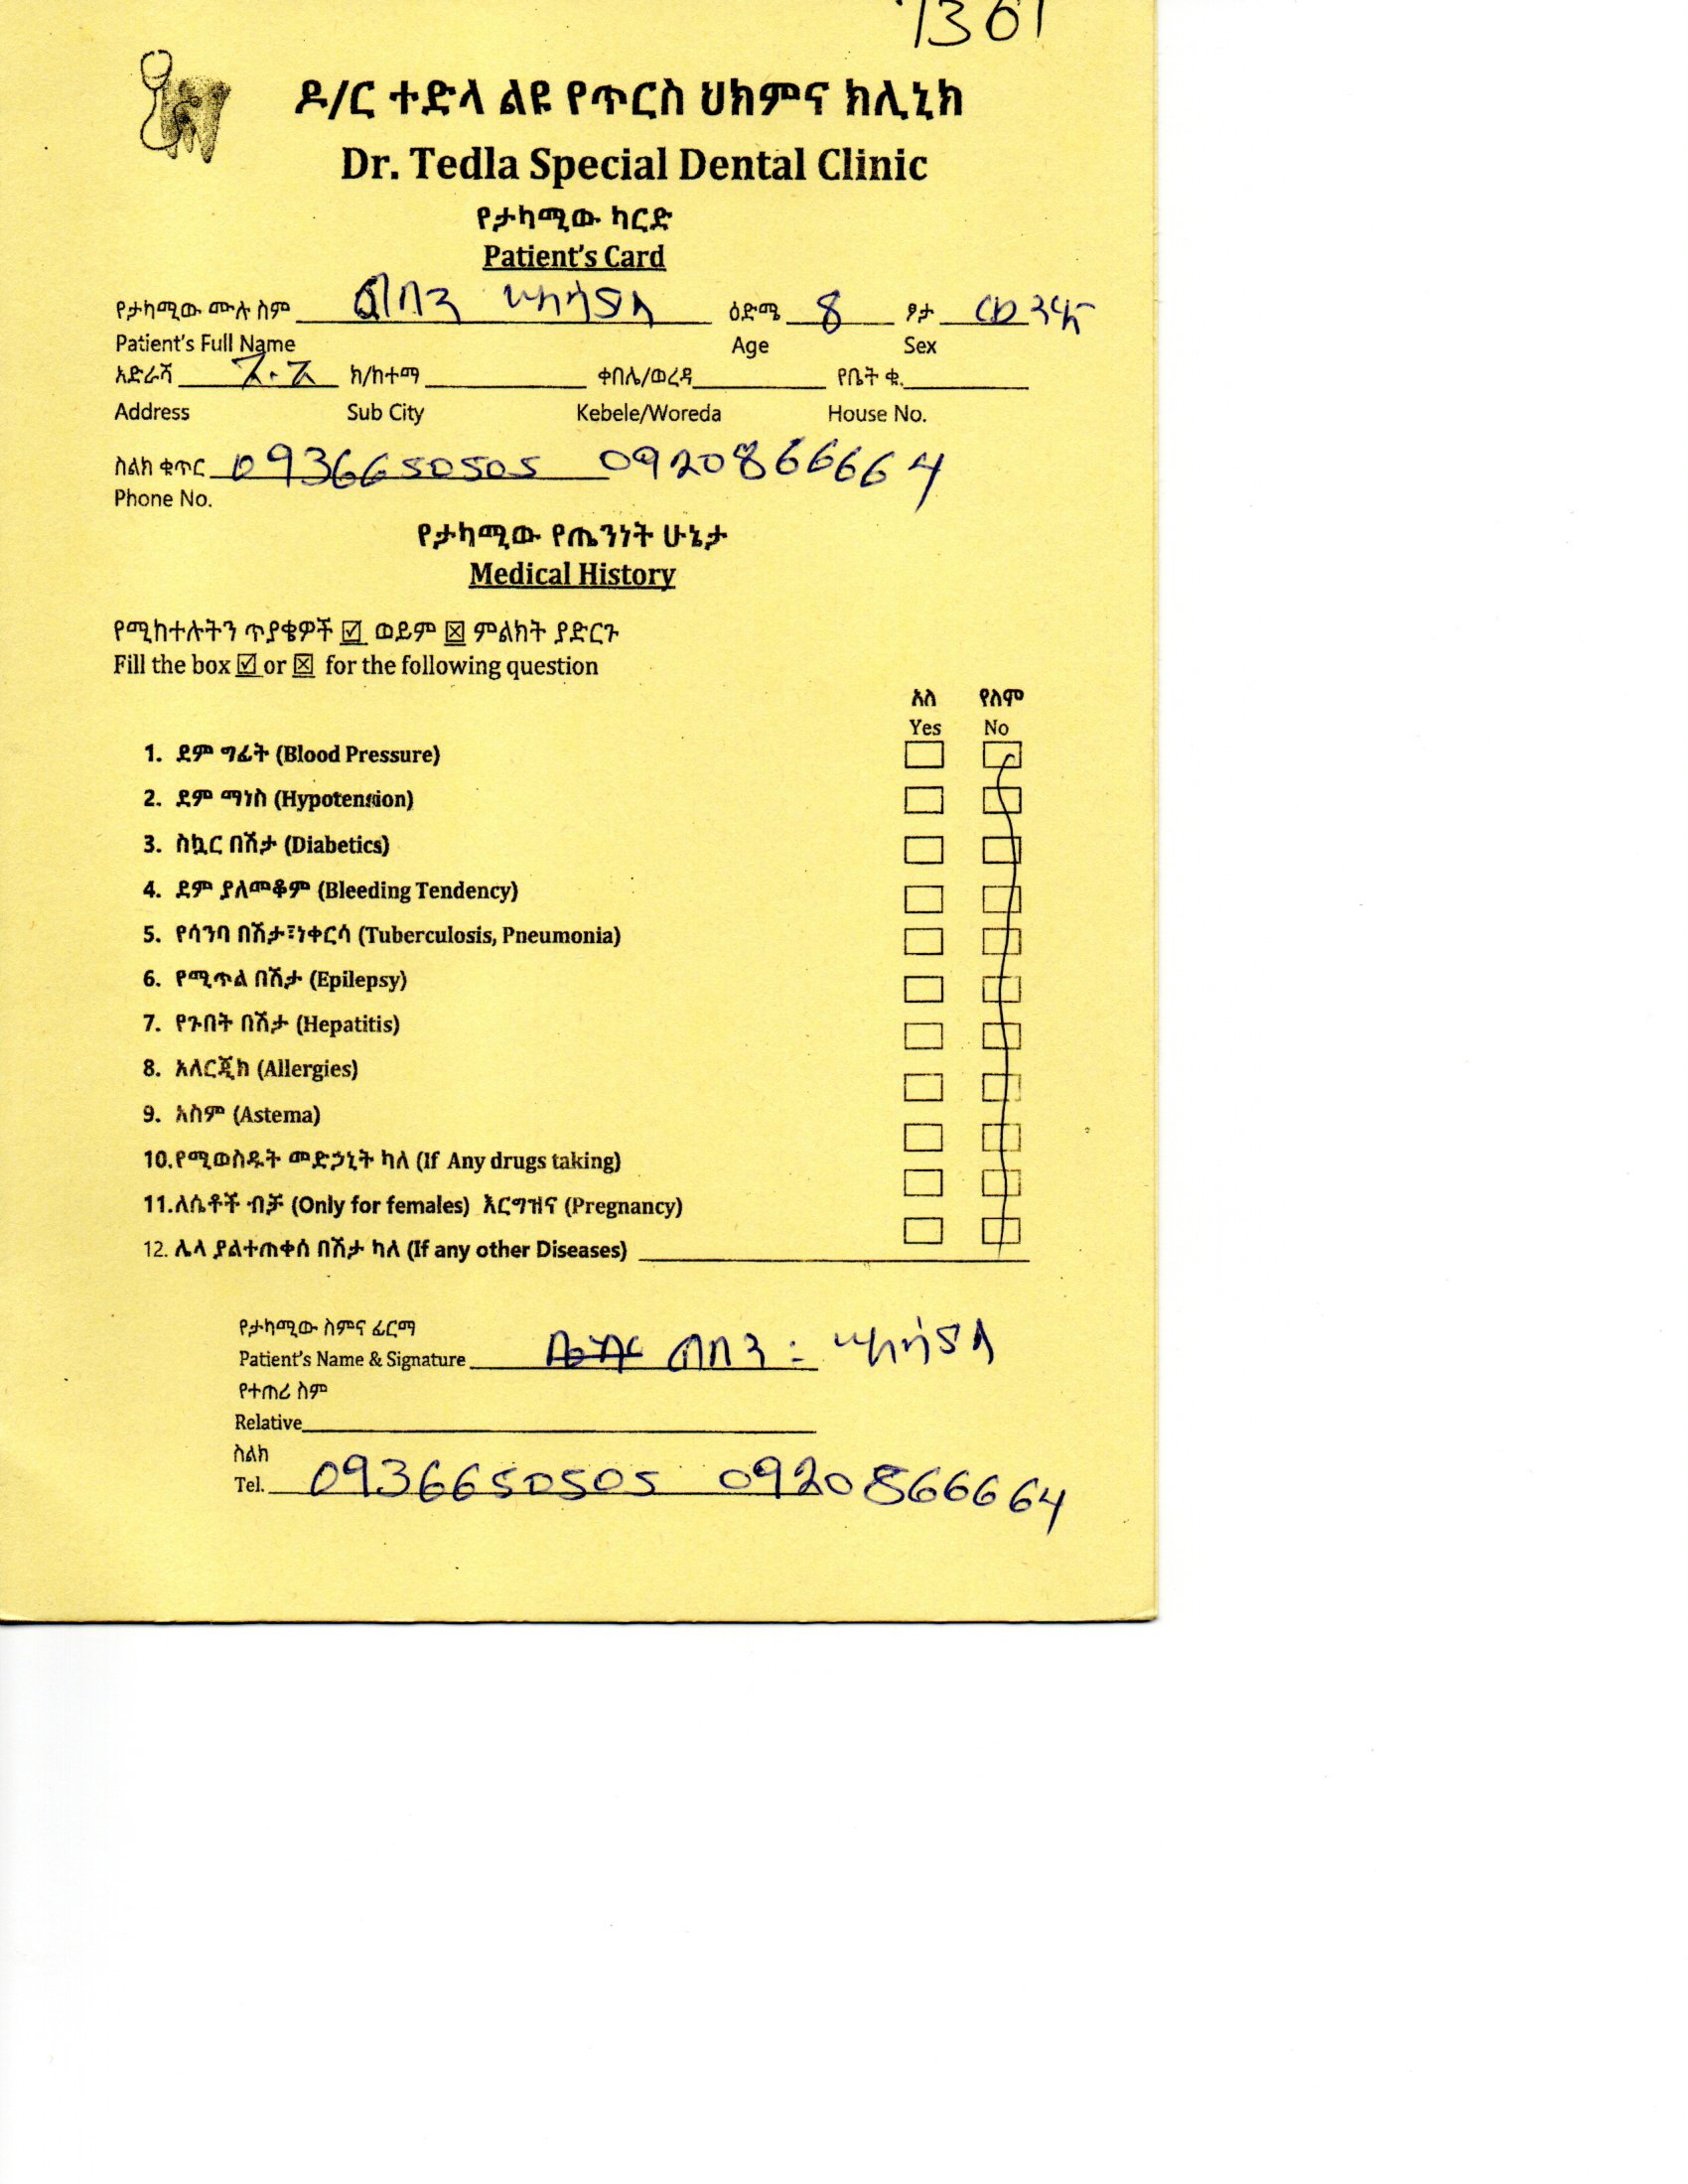 1361
ዶ/ር ተድላ ልዩ የጥርስ ህክምና ክሊኒክ
Dr. Tedla Special Dental Clinic
የታካሚው ካርድ
Patient's Card
የታካሚው ሙሉ ስም ዕድሜ 8 ፆታ
Patient's Full Name Age Sex
አድራሻ ክ/ከተማ ቀበሌ/ወረዳ የቤት ቁ.
Address Sub City Kebele/Woreda House No.
ስልክ ቁጥር 0936650505 0920866664
Phone No.
የታካሚው የጤንነት ሁኔታ
Medical History
የሚከተሉትን ጥያቄዎች ☑ ወይም ☒ ምልክት ያድርጉ
Fill the box ☑ or ☒ for the following question
አለ የለም
Yes No
1. ደም ግፊት (Blood Pressure)
2. ደም ማነስ (Hypotension)
3. ስኳር በሽታ (Diabetics)
4. ደም ያለመቆም (Bleeding Tendency)
5. የሳንባ በሽታ፣ነቀርሳ (Tuberculosis, Pneumonia)
6. የሚጥል በሽታ (Epilepsy)
7. የጉበት በሽታ (Hepatitis)
8. አለርጂክ (Allergies)
9. አስም (Astema)
10.የሚወስዱት መድኃኒት ካለ (If Any drugs taking)
11.ለሴቶች ብቻ (Only for females) እርግዝና (Pregnancy)
12. ሌላ ያልተጠቀሰ በሽታ ካለ (If any other Diseases)
የታካሚው ስምና ፊርማ
Patient's Name & Signature
የተጠሪ ስም
Relative
ስልክ
Tel. 0936650505 0920866664